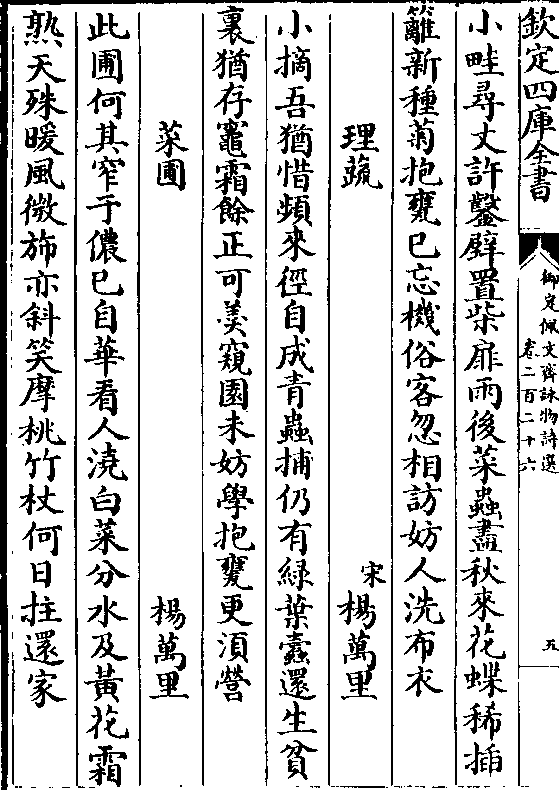 欽定四庫全書
御定佩文齋詠物詩選
卷二百二十六
五
小畦尋丈許鑿壁置柴扉雨後菜蟲盡秋來花蝶稀插
籬新種菊抱甕已忘機俗客忽相訪妨人洗布衣
理蔬
宋楊萬里
小摘吾猶惜頻來徑自成青蟲捕仍有綠葉蠹還生貧
裏猶存竈霜餘正可羮窺園未妨學抱甕更湏營
菜圃
楊萬里
此圃何其窄于儂已自華看人澆白菜分水及黃花霜
熟天殊暖風微斾亦斜笑摩桃竹杖何日拄還家